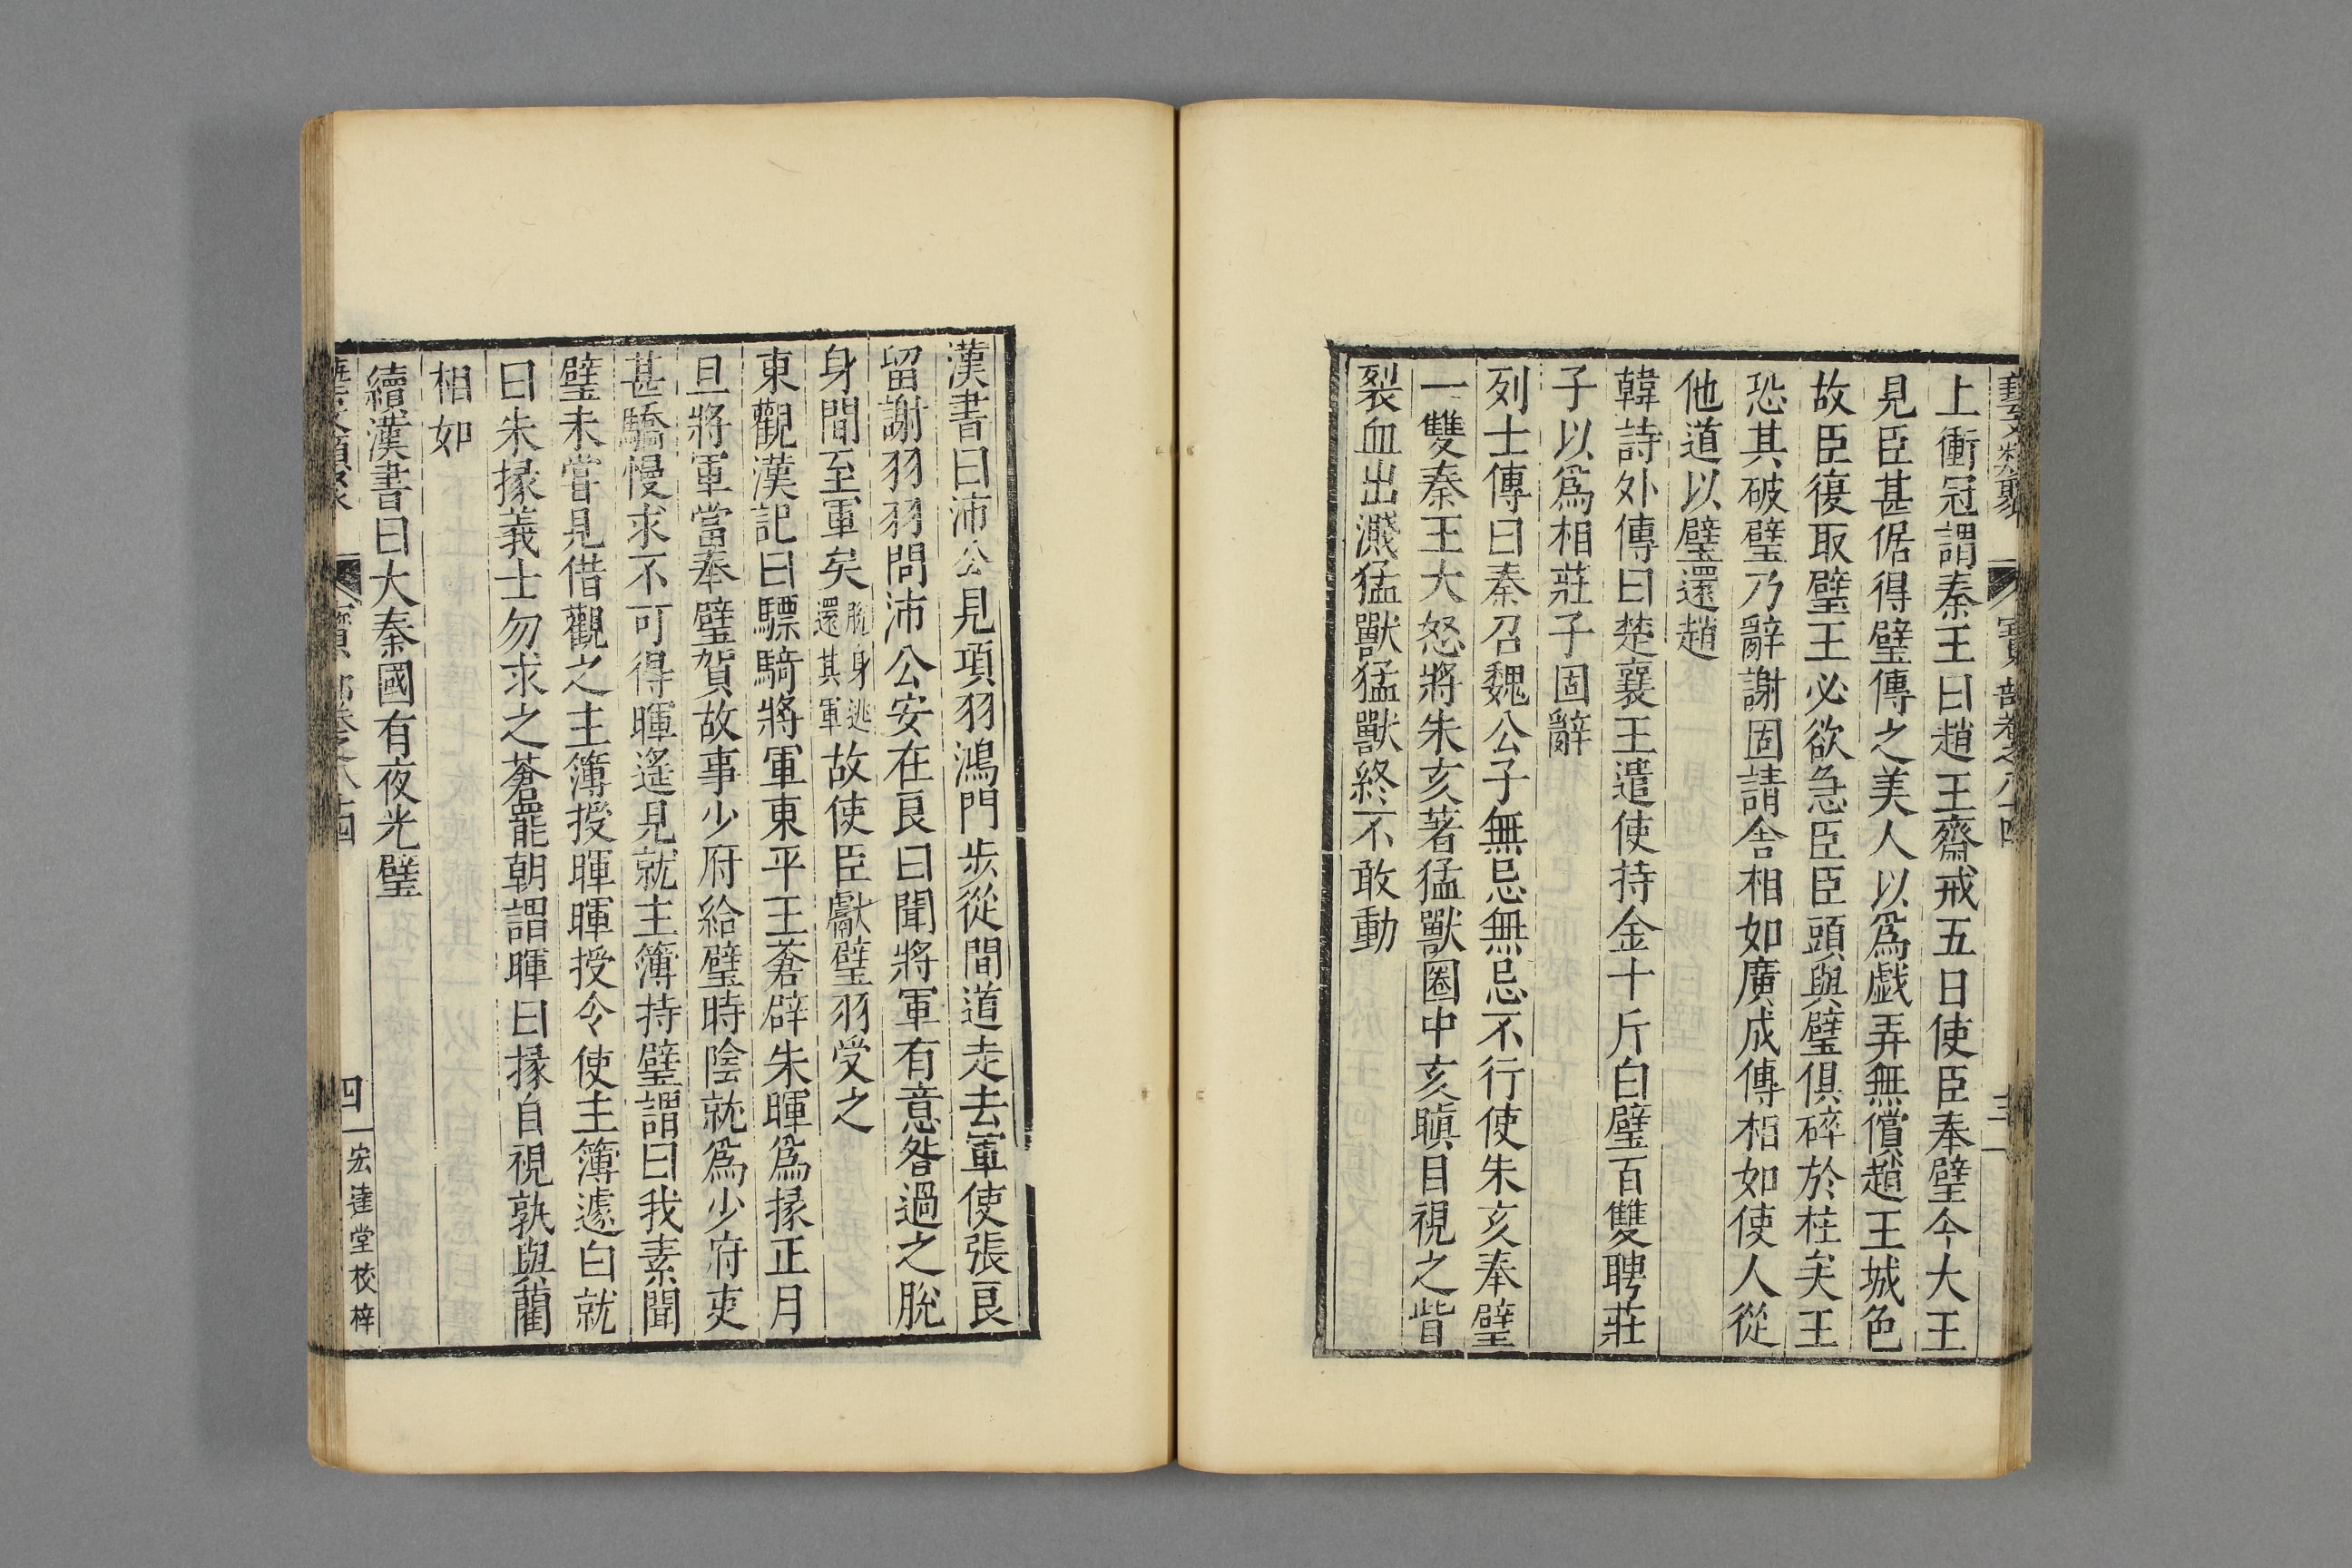 藝文類聚 寶部卷之八十四 三
上衝冠謂秦王曰趙王齋戒五日使臣奉璧今大王
見臣甚倨得璧傳之美人以爲戯弄無償趙王城色
故臣復取璧王必欲急臣臣頭與璧俱碎於柱矣王
恐其破璧乃辭謝固請舍相如廣成傳相如使人從
他道以璧還趙
韓詩外傳曰楚襄王遣使持金十斤白璧百雙聘莊
子以爲相莊子固辭
列士傳曰秦召魏公子無忌無忌不行使朱亥奉璧
一雙秦王大怒將朱亥著猛獸圈中亥瞋目視之眥
裂血出濺猛獸猛獸終不敢動
漢書曰沛公見項羽鴻門步從間道走去軍使張良
留謝羽羽問沛公安在良曰聞將軍有意咎過之脫
身間至軍矣脫身逃還其軍故使臣獻璧羽受之
東觀漢記曰驃騎將軍東平王蒼辟朱暉爲掾正月
旦將軍當奉璧賀故事少府給璧時陰就爲少府吏
甚驕慢求不可得暉遙見就主簿持璧謂曰我素聞
璧未嘗見借觀之主簿授暉暉授令使主簿遽白就
曰朱掾義士勿求之蒼罷朝謂暉曰掾自視孰與藺
相如
續漢書曰大秦國有夜光璧
藝文類聚 寶部卷之八十四 四 宏達堂校梓